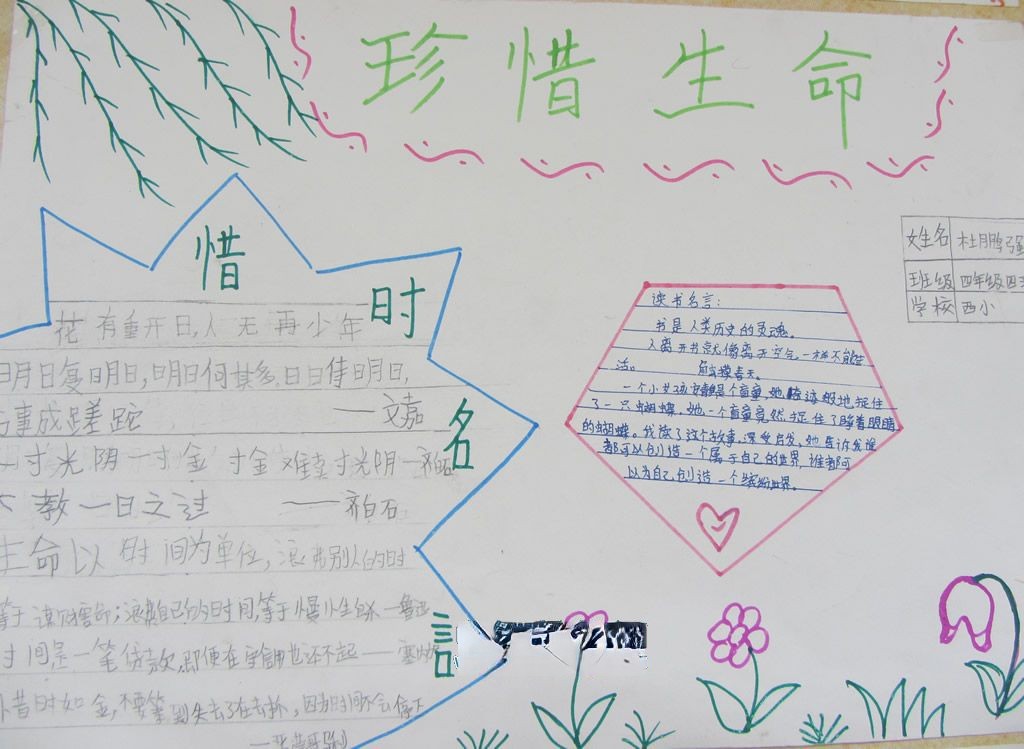 珍惜生命
惜时名言
花有重开日,人无再少年
明日复明日,明日何其多,日日待明日,
事成蹉跎
——文嘉
一寸光阴一寸金 寸金难 寸光阴
教一日之过 ——齐白石
生命以时间为单位,浪费别人的时
等于谋财害命;浪费自己的时间,等于慢性自杀 —鲁迅
时间是一笔贷款,即便在 也还不起——
惜时如金,不要等到失去了在去 ,因为时间不会停下
姓名 杜鹏强
班级 四年级四
学校 西小
读书名言:
书是人类历史的灵魂。
人离开书就像离开空气一样不能生
活。 触摸春天。
一个小女孩 是个盲童,她 地捉住
了一只蝴蝶。她一个盲童竟然捉住了 着眼睛
的蝴蝶。我读了这个故事,深受启发,她告诉我谁
都可以创造一个属于自己的世界,谁都可
以为自己创造一个缤纷世界。